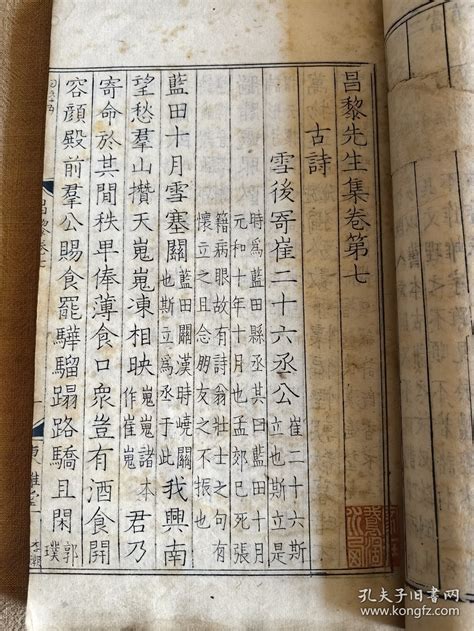 昌黎先生集卷第七
古詩
雪後寄崔二十六丞公崔二十六斯
立也斯立是
時爲藍田縣丞其曰藍田十月
元和十年十月也孟郊巳死張
籍病眼故有詩翁壯士之句有
懷立之且念朋友之不振也
藍田十月雪塞關藍田關漢時嶢關
也斯立爲丞于此我興南
望愁羣山攢天嵬嵬凍相映嵬嵬諸本
作崔嵬君乃
寄命於其閒秩卑俸薄食口衆豈有酒食開
容顏殿前羣公賜食罷驊騮蹋路驕且閑郭
璞
孔夫子旧书网
kongfz.com